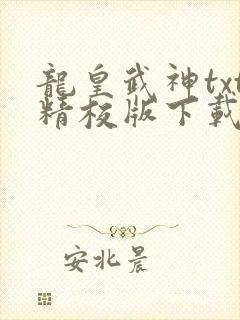 龍皇武神txt
精校版下載
安北晨